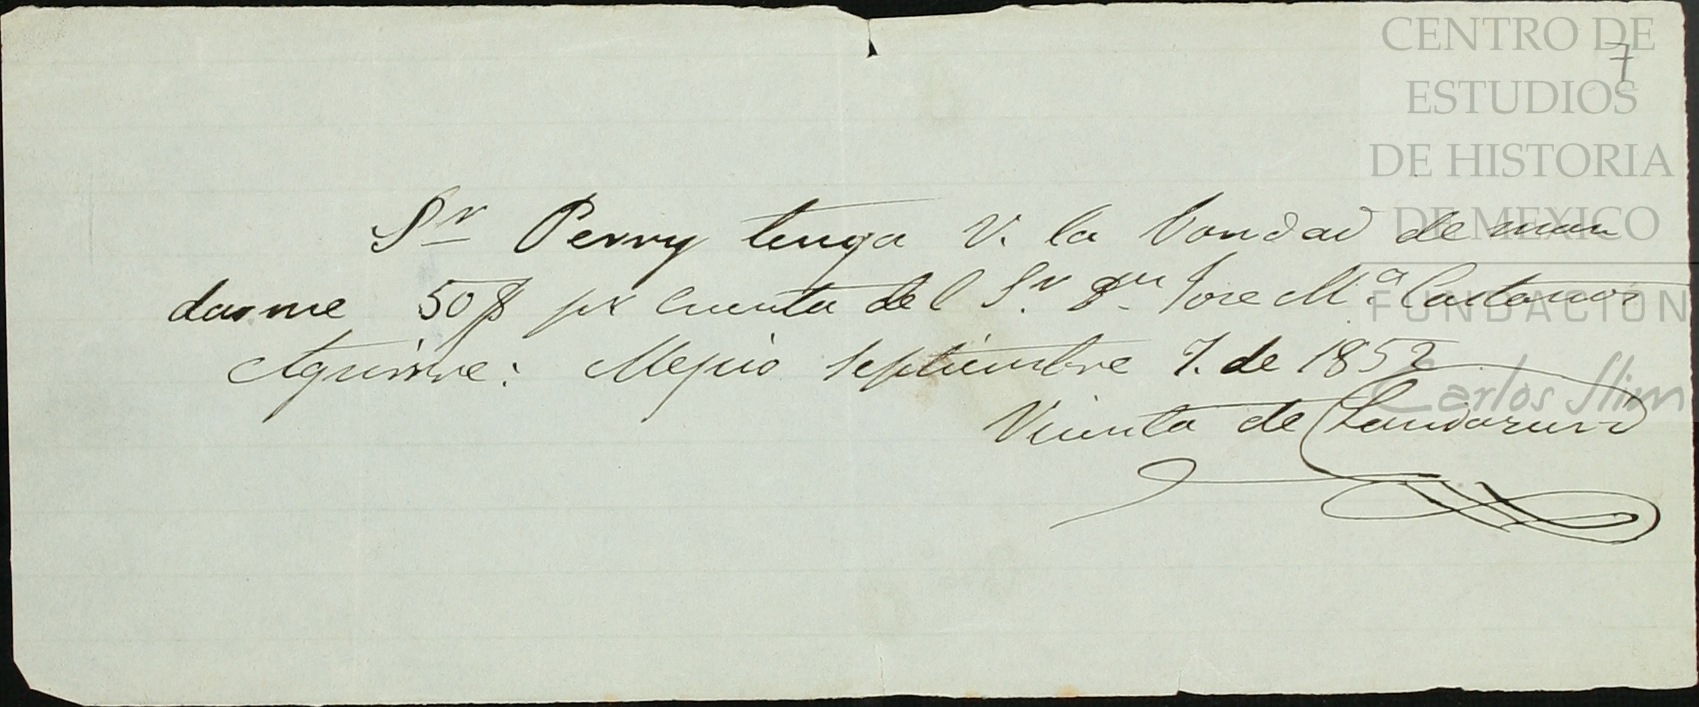 7
Sr Perry tenga V. la vondad de man
darme 50$ pr cuenta del Sr. Dn Jose Ma. Castaños
Aguirre: Mejico Septiembre 7. de 1852
Vicenta de Landaruvd
CENTRO DE
ESTUDIOS
DE HISTORIA
DE MEXICO
FUNDACIÓN
Carlos Slim